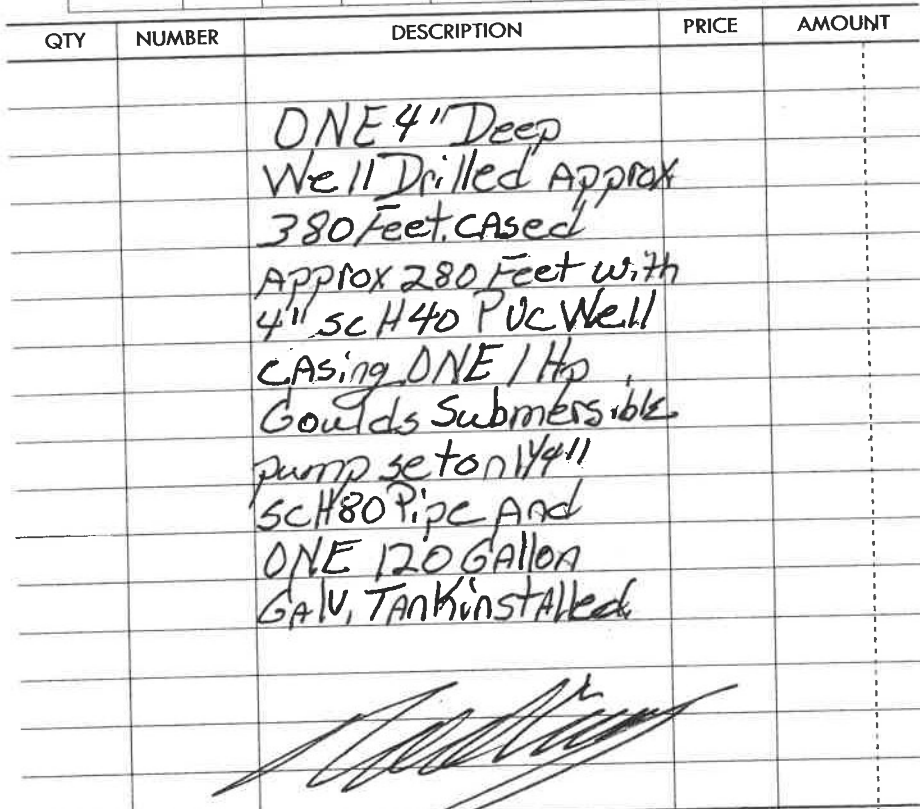 QTY NUMBER DESCRIPTION PRICE AMOUNT
ONE 4" Deep
Well Drilled Approx
380 Feet. CAsed
Approx 280 Feet with
4" scH40 PVC Well
CAsing ONE 1 Hp
Goulds Submersible
pump set on 1 1/4"
scH80 Pipe And
ONE 120 GAllon
GAlv. TAnk instAlled.